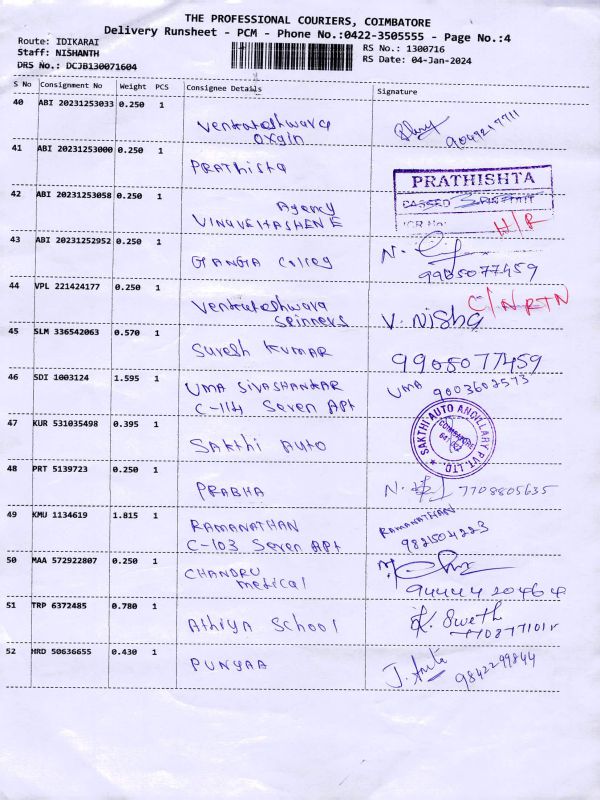 THE PROFESSIONAL COURIERS, COIMBATORE
Delivery Runsheet - PCM - Phone No.:0422-3505555 - Page No.:4
Route: IDIKARAI
Staff: NISHANTH
DRS No.: DCJB130071604
RS No.: 1300716
RS Date: 04-Jan-2024
S No Consignment No Weight PCS Consignee Details Signature
40 ABI 20231253033 0.250 1
Venkateshwara
oxgin
9047217711
41 ABI 20231253000 0.250 1
PRAthista
PRATHISHTA
42 ABI 20231253058 0.250 1
Agency
H/R
43 ABI 20231252952 0.250 1
GANGA Colleg
9905077459
44 VPL 221424177 0.250 1
Venkateshwara
Spinners
V. Nisha
C/N RTN
45 SLM 336542063 0.570 1
Suresh Kumar
9905077459
46 SDI 1003124 1.595 1
UMA SIVASHANKAR
C-114 Seven Apt
UMA 9003602573
47 KUR 531035498 0.395 1
SAKthi Auto
SAKTHI AUTO ANCILLARY PVT. LTD.
COIMBATORE
48 PRT 5139723 0.250 1
PRABHA
7708805635
49 KMU 1134619 1.815 1
RAMANATHAN
C-103 Seven Apt
RAMANATHAN
9821504223
50 MAA 572922807 0.250 1
CHANDRU
medical
9444420464
51 TRP 6372485 0.780 1
Athiya School
K. Sweth
52 HRD 50636655 0.430 1
PUNYAA
J. Anita
9842299844